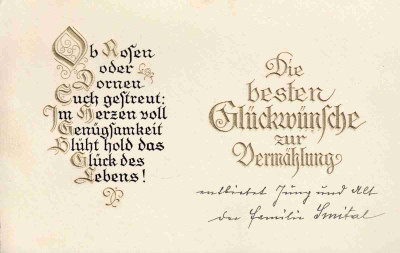 Ob Rosen
oder
Dornen
Euch gestreut:
Im Herzen voll
Genügsamkeit
Blüht hold das
Glück des
Lebens!
Die
besten
Glückwünsche
zur
Vermählung
entbietet Jung und Alt
der Familie Smital